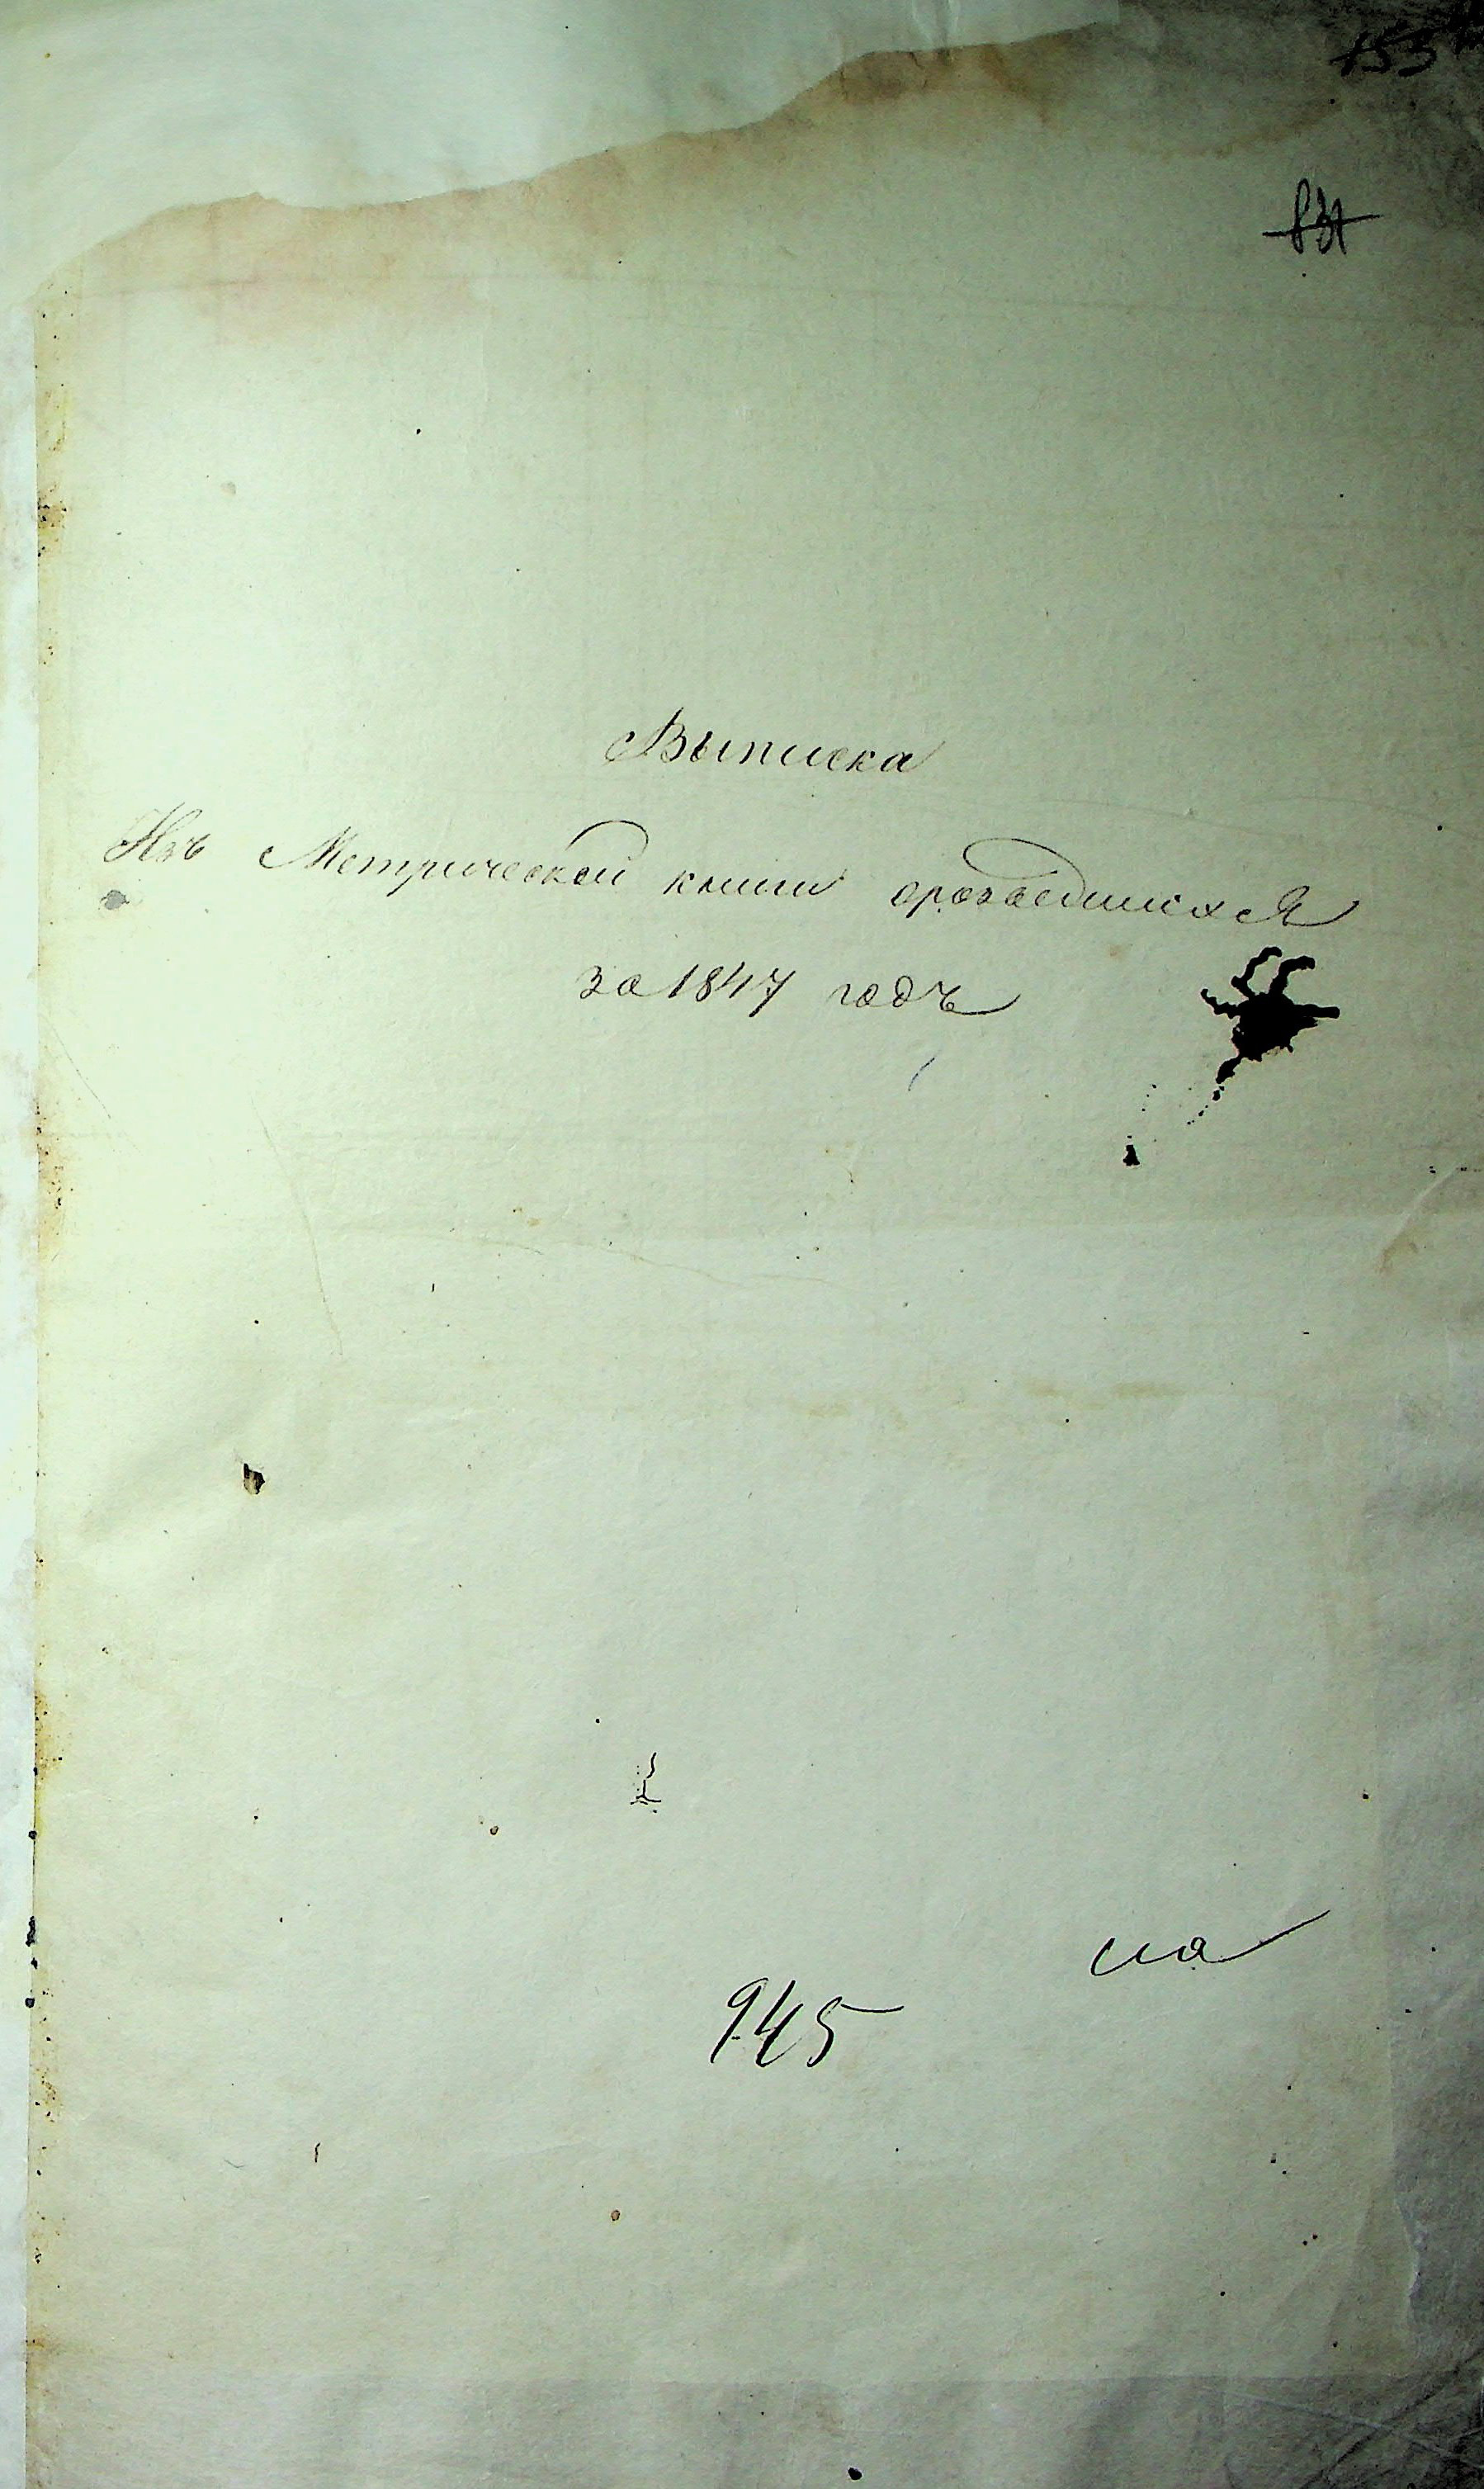 153
831
Выписка
Изъ Метрической книги ородившихся
за 1847 годъ
на
945